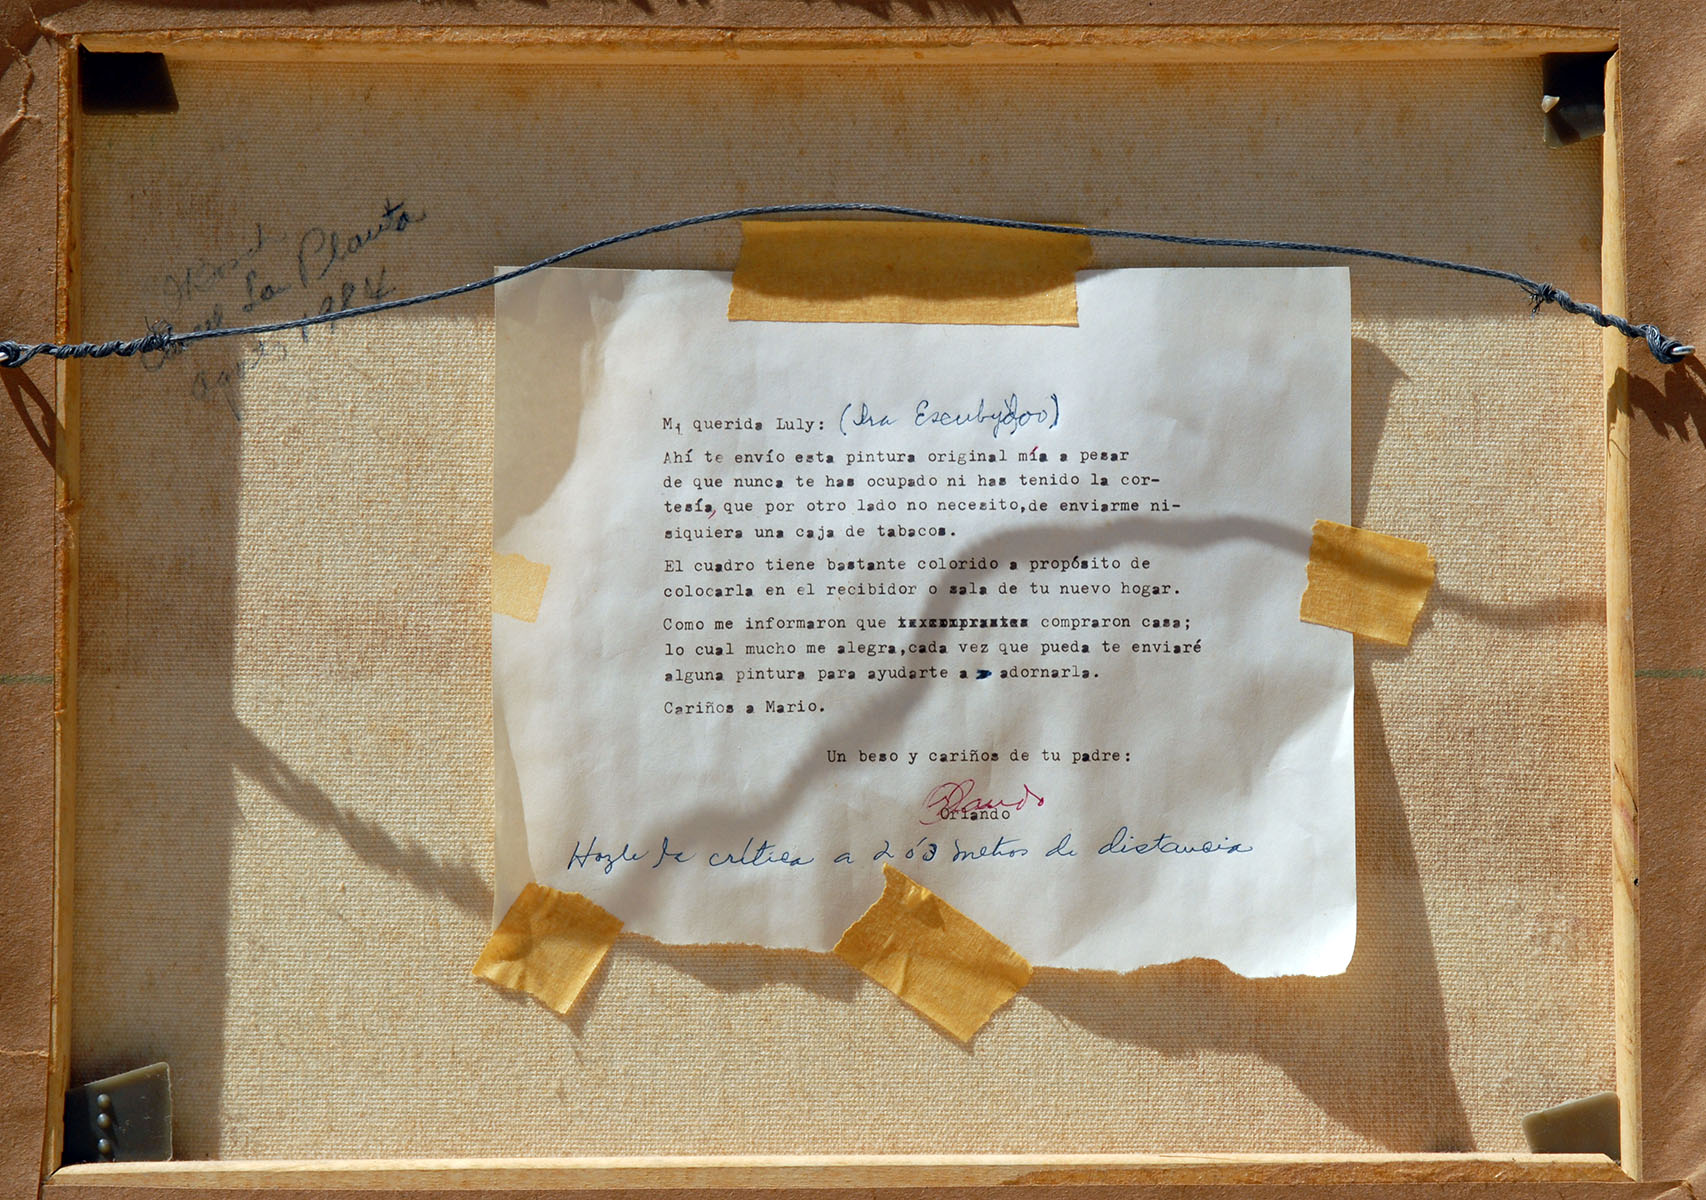 OBosch
Cuartel La Planta
agosto, 1984
Mi querida Luly: (Dra Escubydoo)
Ahí te envío esta pintura original mía a pesar
de que nunca te has ocupado ni has tenido la cor-
tesía, que por otro lado no necesito,de enviarme ni-
siquiera una caja de tabacos.
El cuadro tiene bastante colorido a propósito de
colocarla en el recibidor o sala de tu nuevo hogar.
Como me informaron que compraron casa;
lo cual mucho me alegra,cada vez que pueda te enviaré
alguna pintura para ayudarte a adornarla.
Cariños a Mario.
Un beso y cariños de tu padre:
Orlando
Orlando
Hazle la crítica a 2 ó 3 metros de distancia